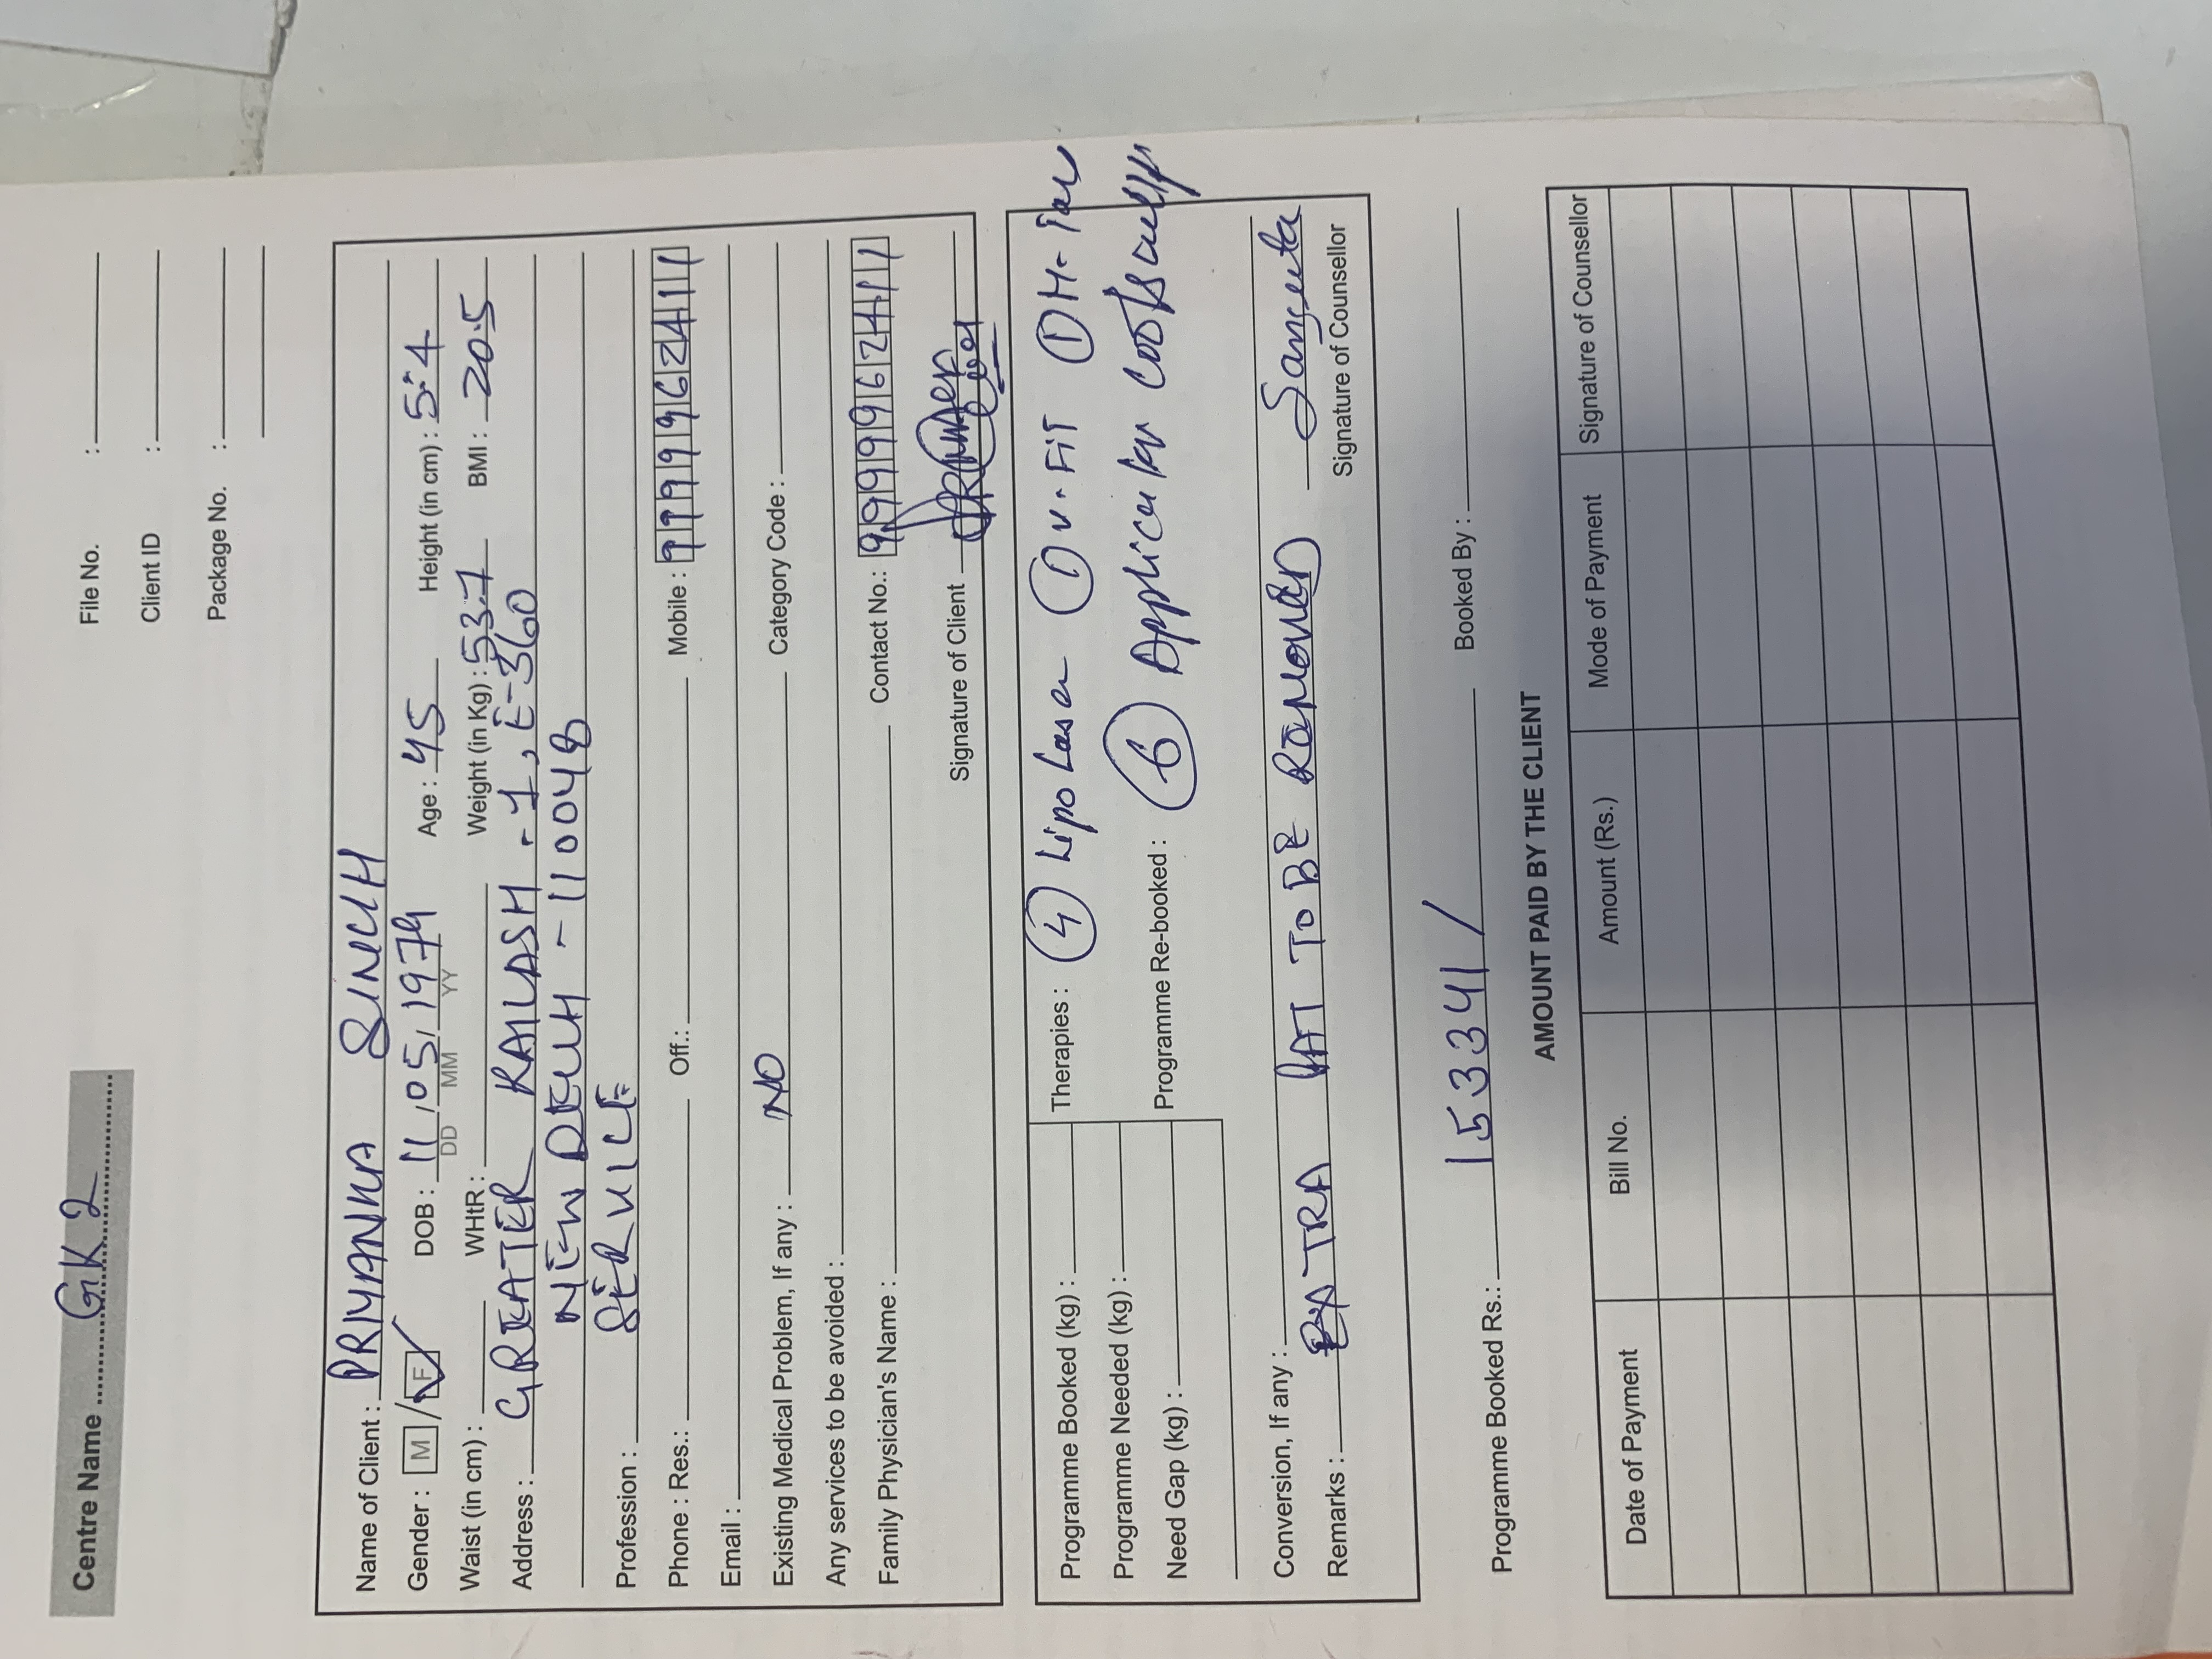 Centre Name GK 2
File No. :
Client ID :
Package No. :
Name of Client : PRIYANKA SINGH
Gender : M / F DOB : 11/05/1979 Age : 45 Height (in cm) : 5"4
DD MM YY
Waist (in cm) : WHtR : Weight (in Kg) : 53.7 BMI : 20.5
Address : GREATER KAILASH - 1, E-360
NEW DELHI - 110048
Profession : SERVICE
Phone : Res.: Off.: Mobile : 9999962411
Email :
Existing Medical Problem, If any : NO Category Code :
Any services to be avoided :
Family Physician's Name : Contact No.: 9999962411
Signature of Client
Programme Booked (kg) : Therapies : 4 Lipo Laser 1 V-FIT 1 H-
Programme Needed (kg) :
Need Gap (kg) : Programme Re-booked : 6
Conversion, If any : Sangeeta
Remarks : EXTRA FAT TO BE REMOVED
Signature of Counsellor
Programme Booked Rs.: 153341/ Booked By :
AMOUNT PAID BY THE CLIENT
Date of Payment Bill No. Amount (Rs.) Mode of Payment Signature of Counsellor